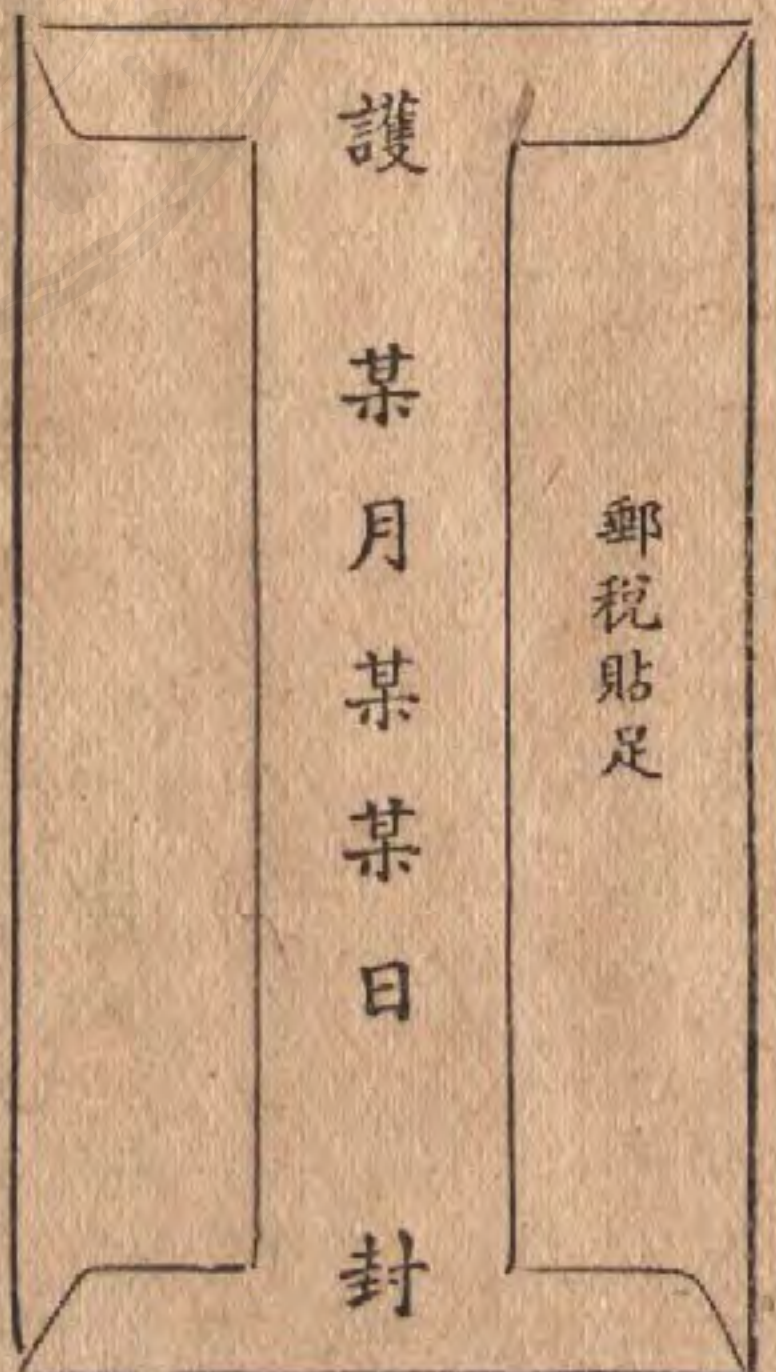 郵税貼足
護某月某某日封